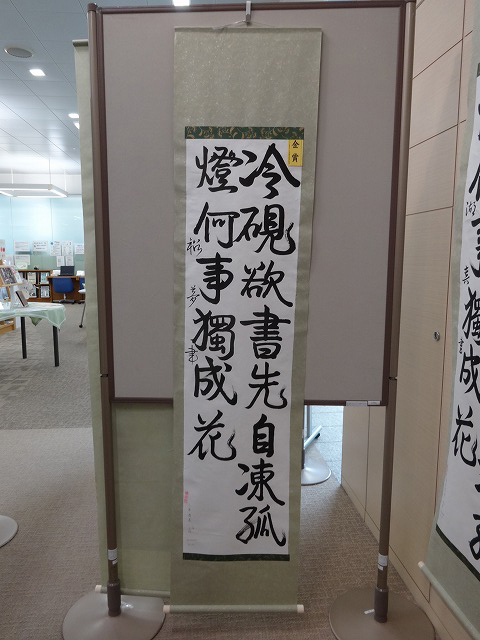 金賞
冷硯欲書先自凍孤
燈何事獨成花
裕夢書
事獨成花